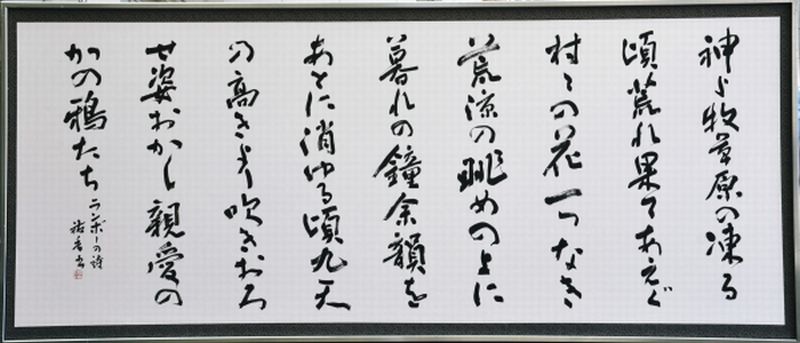 神よ牧草原の凍る
頃荒れ果てあえぐ
村々の花一つなき
荒涼の眺めの上に
暮れの鐘余韻を
あとに消ゆる頃九天
の高きより吹きおろ
せ姿おかし親愛の
かの鴉たち
ランボーの詩